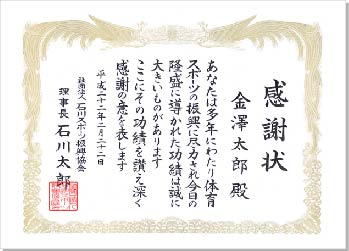 感謝状
金澤太郎殿
あなたは多年にわたり体育
スポーツの振興に尽力され今日の
隆盛に導かれた功績は誠に
大きいものがあります
ここにその功績を讃え深く
感謝の意を表します
平成二十二年二月二十一日
社団法人石川スポーツ振興協会
理事長 石川太郎